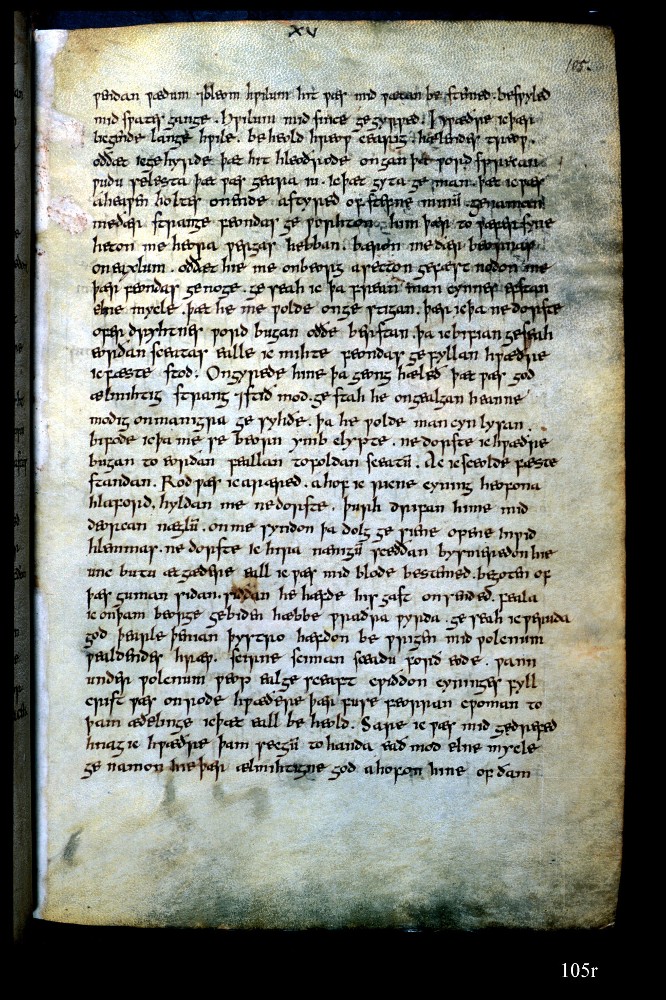 XV
105.
wendan wædum ⁊bleom hwilum hit wæs mid wætan be stemed. beswyled
mid swates gange. hwilum mid since ge gyrwed. Hwæðre ic þær
licgende lange hwile. be heold hreow cearig. hælendes treow.
oððæt ic ge hyrde þæt hit hleoðrode ongan þa word sprecan
wudu selesta þæt wæs geara iu. ic þæt gyta ge man. þæt ic wæs
aheawen holtes on ende astyred of stefne minū. genaman
me ðær strange feondas ge worhton him þær to wæfersyne
heton me heora wergas hebban. bæron me ðær beornas
on eaxlum. oððæt hie me on beorg asetton gefæstnodon me
þær feondas genoge. ge seah ic þa frean man cynnes efstan
elne mycle. þæt he me wolde on ge stigan. þær ic þa ne dorste
ofer dryhtnes word bugan oððe berstan. þa ic bifian geseah
eorðan sceatas ealle ic mihte feondas ge fyllan hwæðre
ic fæste stod. Ongyrede hine þa geong hæleð þæt wæs god
ælmihtig strang ⁊stið mod. ge stah he on gealgan heanne
modig on manigra ge syhðe. þa he wolde man cyn lysan.
bifode ic þa me se beorn ymb clypte. ne dorste ic hwæðre
bugan to eorðan feallan to foldan sceatū. Ac ic sceolde fæste
standan. Rod wæs ic aræred. ahof ic ricne cyning heofona
hlaford. hyldan me ne dorste. þurh drifan hi me mid
deorcan næglū. on me syndon þa dolg ge siene opene inwid
hlemmas. ne dorste ic hira nænigū sceððan bysmeredon hie
unc butu æt gædere eall ic wæs mid blode bestemed. begoten of
þæs guman sidan. siððan he hæfde his gast on sended. feala
ic on þam beorge gebiden hæbbe wraðra wyrda. ge seah ic weruda
god þearle þenian þystro hæfdon be wrigen mid wolcnum
wealdendes hræw. scirne sciman sceadu forð eode. wann
under wolcnum weop eal ge sceaft cwiðdon cyninges fyll
crist wæs on rode hwæðere þær fuse feorran cwoman to
þam æðelinge ic þæt eall be heold. Sare ic wæs mid gedrefed
hnag ic hwæðre þam secgū to handa eað mod elne mycle
ge namon hie þær ælmihtigne god ahofon hine of ðam
105r